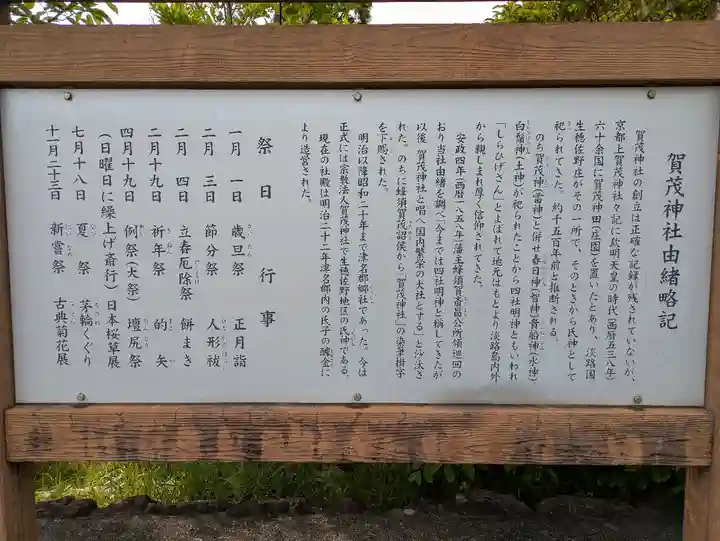 賀茂神社由緒略記
賀茂神社の創立は正確な記録が残されていないが、
京都上賀茂神社々記に欽明天皇の時代(西暦五三八年)
六十余国に賀茂神田(庄園)を置いたとあり、淡路国
生穂佐野庄がその一所で、そのときから氏神として
祀られてきた。約千五百年前と推断される。
のち賀茂神(雷神)と併せ春日神(智神)貴船神(水神)
白鬚神(土神)が祀られたことから四社明神ともいわれ
「しらひげさん」とよばれて地元はもとより淡路島内外
から親しまれ厚く信仰されてきた。
安政四年(西暦一八五八年)藩主蜂須賀斉昌公所領巡回の
おり当社由緒を調べ「今までは四社明神と称してきたが
以後 賀茂神社と唱へ国内繁栄の大社とする」と沙汰さ
れた。のちに蜂須賀茂韶侯から「賀茂神社」の染筆掛字
を下賜された。
明治以降昭和二十年まで津名郡郷社であった。今は
正式には宗教法人賀茂神社で生穂佐野地区の氏神である。
現在の社殿は明治二十二年津名郡内の氏子の醵金に
より造営された。
祭日 行事
一月 一日 歳旦祭 正月詣
二月 三日 節分祭 人形祓
二月 四日 立春厄除祭 餅まき
二月十九日 祈年祭 的矢
四月十九日 例祭(大祭) 壇尻祭
(日曜日に繰上げ斎行) 日本桜草展
七月十八日 夏祭 茅輪くぐり
十一月二十三日 新嘗祭 古典菊花展